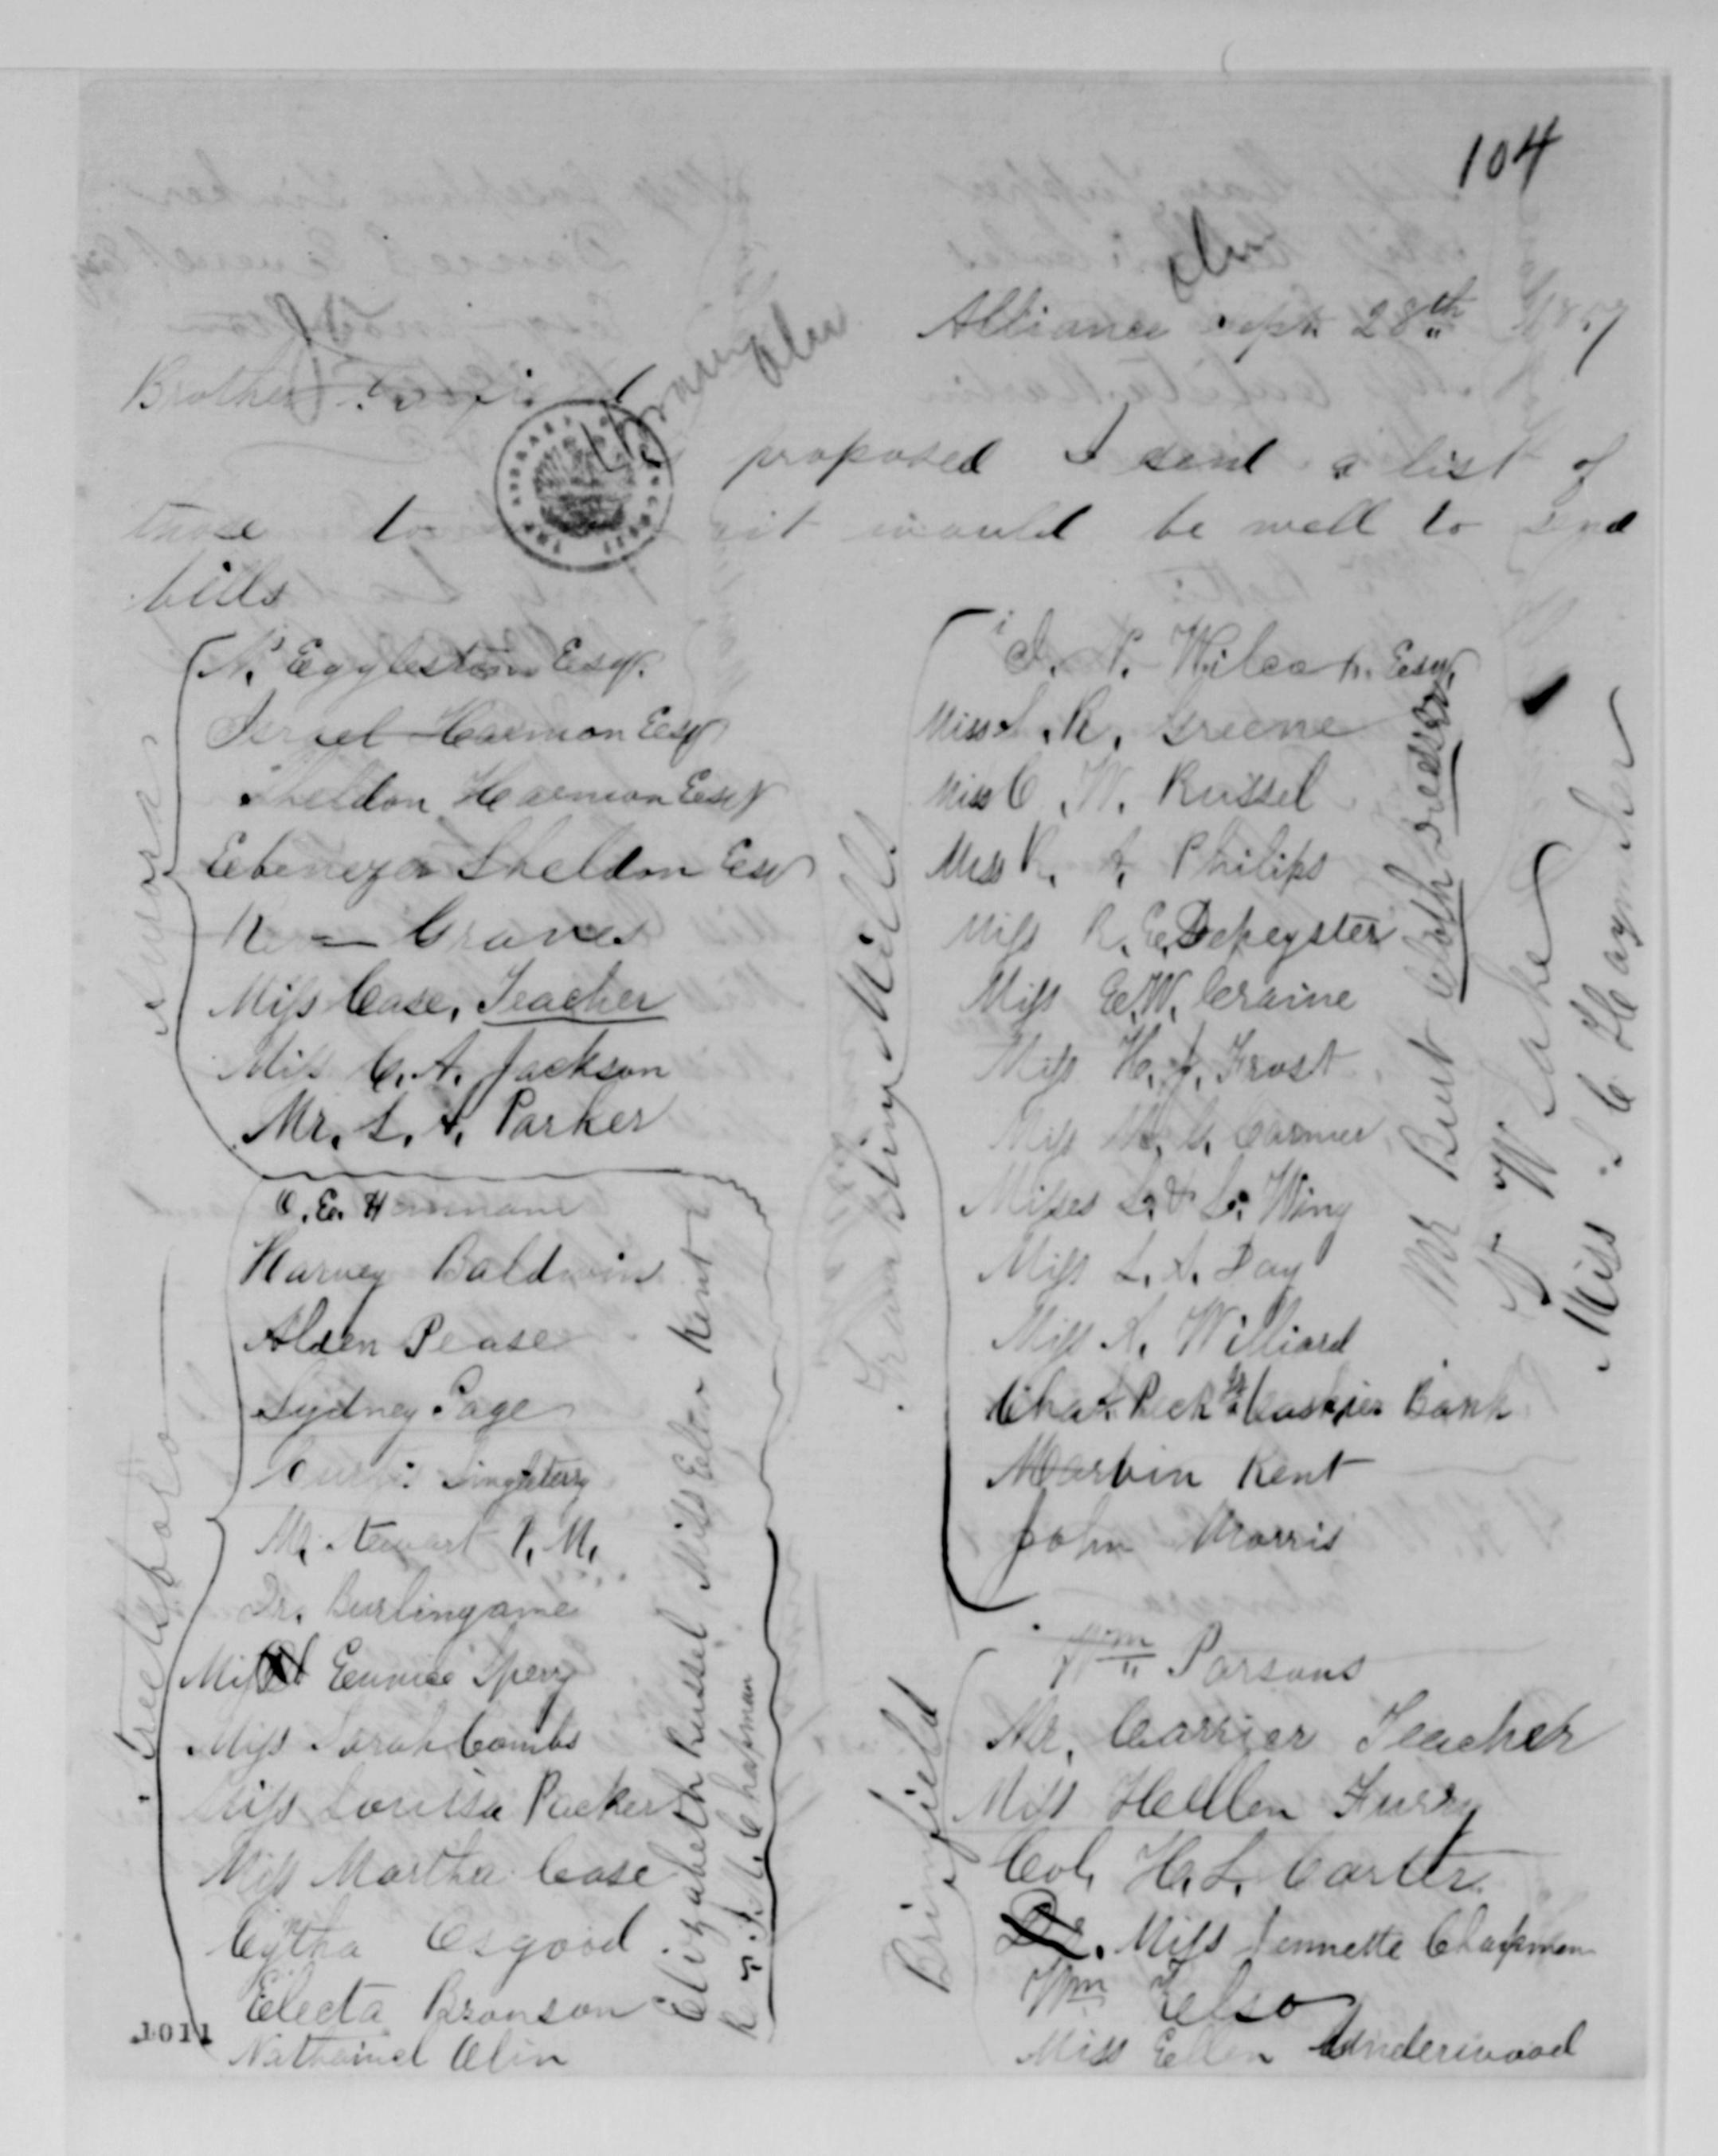 104
Olin
Alliance Sept. 28th 1857
Brother
proposed I send a list of
those to it would be well to send
bills
Aurora
N. Eggleston Esqr.
Israel Harmon Esqr
Sheldon Harmon Esqr
Ebenezer Sheldon Esqr
Graves
Miss Case, Teacher
Miss C. A. Jackson
Mr. L. A. Parker
Streetsboro
O. E. H
Harvey Baldwin
Alden Pease
Sydney Page
Curtis Singletery
Mr. Stewart P. M.
Dr. Burlingame
Miss Eunice Spery
Miss Sarah Combs
Miss Lorissa Packer
Miss Martha Case
Cyntha Osgood
Electa Bronson
Nathaniel Olin
Elizabeth Russel Miss Kent
Rev. Chapman
Franklin Mills
P. Wilcox Esqr.
Miss R. Greene
Miss C. W. Russel
Miss Philips
Miss R. E. Depeyster
Miss E. W. Craine
Miss H. J. Frost
Miss Carmer
Misses L. & L. Wing
Miss L. A. Day
Miss A. Williard
Chas. Peck Cashier Bank
Marvin Kent
John Morris
Mr Burt Cloth Dresser
W Lake
Miss S C Haymaker
Brimfield
Wm Parsons
Mr. Carrier Teacher
Miss Hellen Furry
Col. H. L. Carter
Miss Jennette Chapman
Wm Kelso
Miss Ellen Underwood
1011